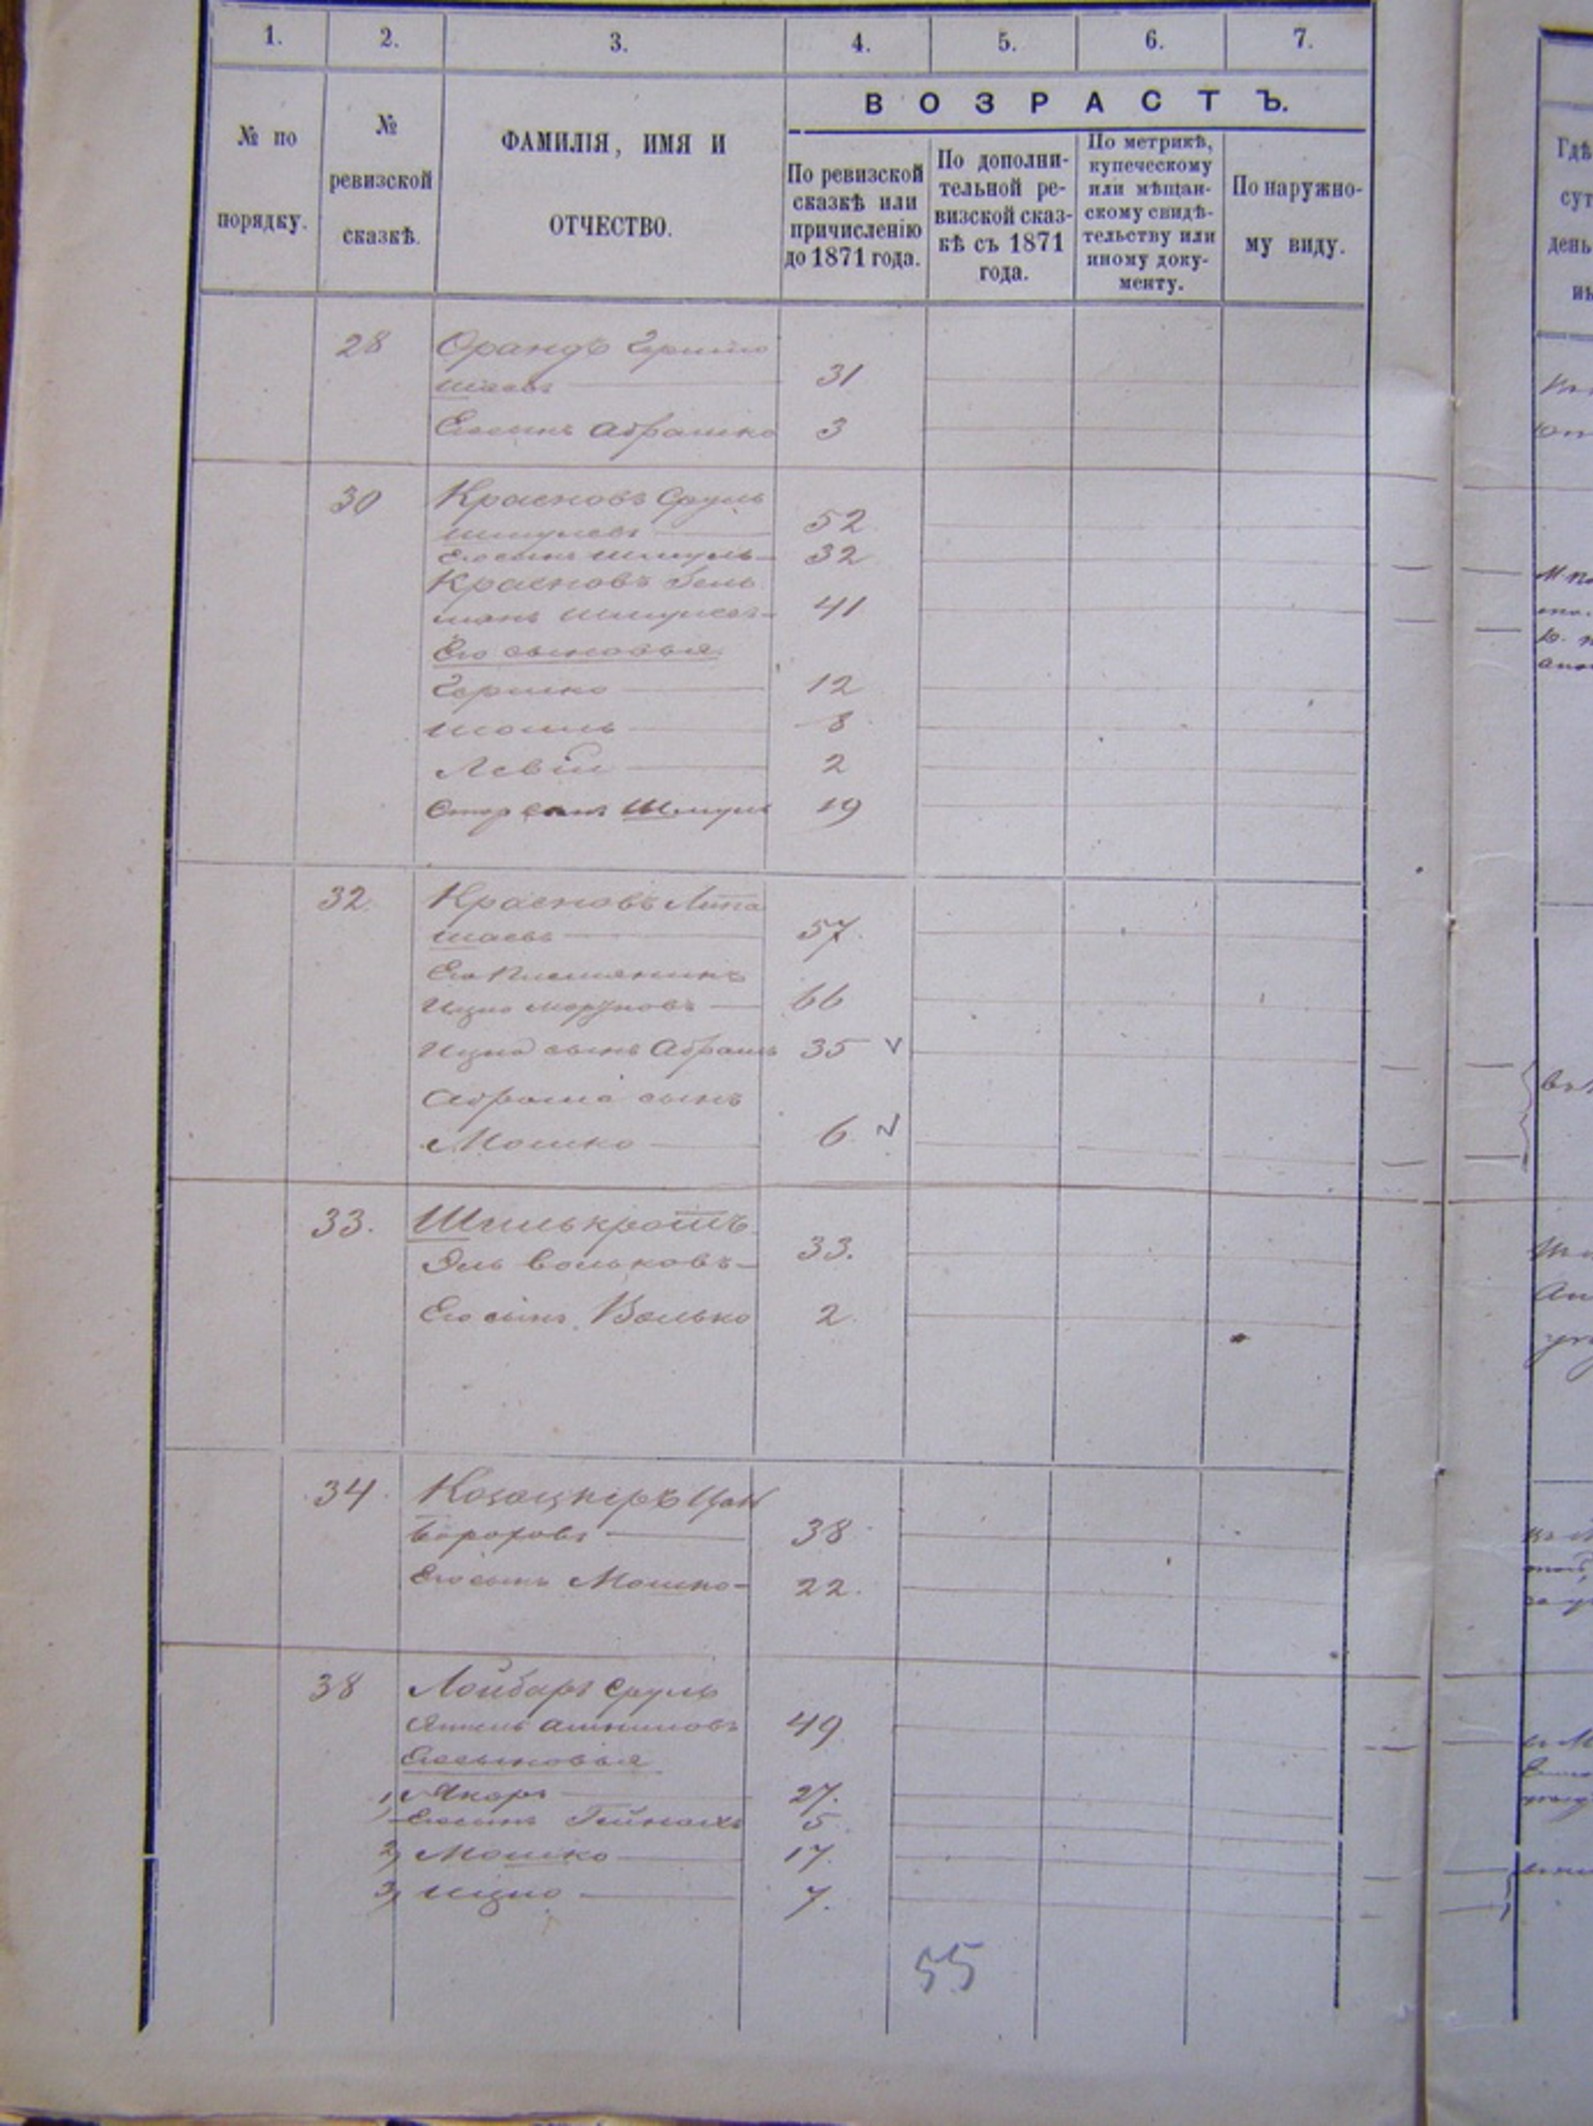 1. 2. 3. 4. 5. 6. 7.
ВОЗРАСТЪ.
№ по
порядку.
№
ревизской
сказкѣ.
ФАМИЛІЯ, ИМЯ И
ОТЧЕСТВО.
По ревизской
сказкѣ или
причисленію
до 1871 года.
По дополни-
тельной ре-
визской сказ-
кѣ съ 1871
года.
По метрикѣ,
купеческому
или мѣщан-
скому свидѣ-
тельству или
иному доку-
менту.
По наружно-
му виду.
28 Орандъ Гершко
Шаевъ 31
Его сынъ Абрашко 3
30 Красновъ Сруль
Шмулевъ 52
Его сынъ Шмуль 32
Красновъ
Шмулевъ 41
Его сыновья
Гершко 12
Шоиль 8
Левія 2
сынъ Шмуль 19
32. Красновъ Липа
Шаевъ 57.
Его племянникъ
Ицко 66
Ицка сынъ Абрамъ 35 v
Абрама сынъ
Мошко 6 v
33. Шпилькротъ
Эль Вольковъ 33.
Его сынъ Волько 2.
34. Козацкеръ
Бороховъ 38
Его сынъ Мошко 22.
38 Лойбаръ Сруль
49
Его сыновья
1, 27.
Его сынъ Гейнахъ 5
2, Мошко 17.
3, Ицко 7.
55